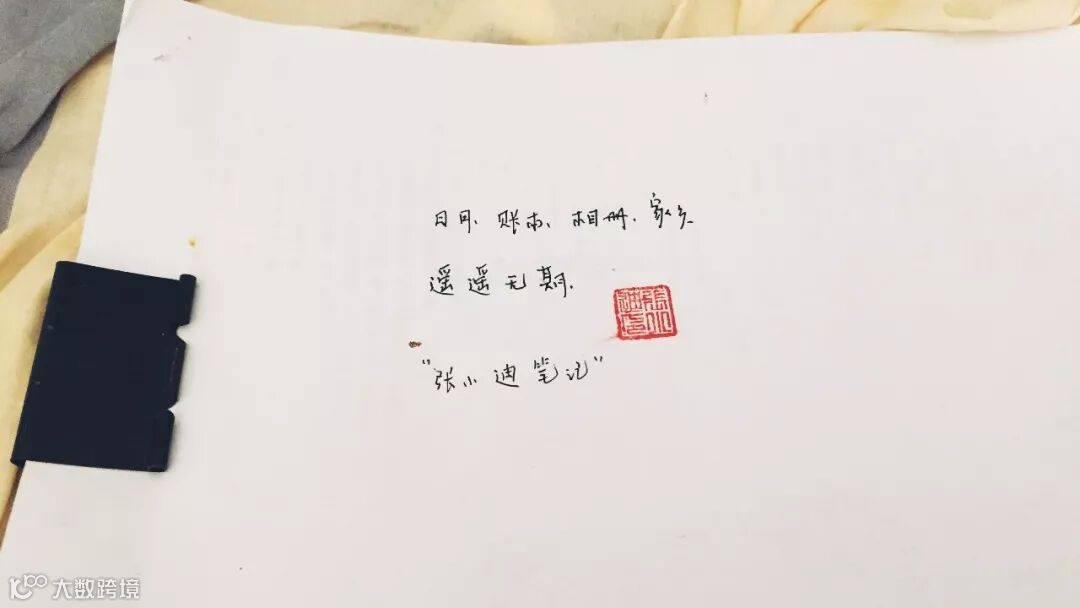 日月、账本、相册、家乡
遥遥无期.
张小迪印
"张小迪笔记"
大数跨境